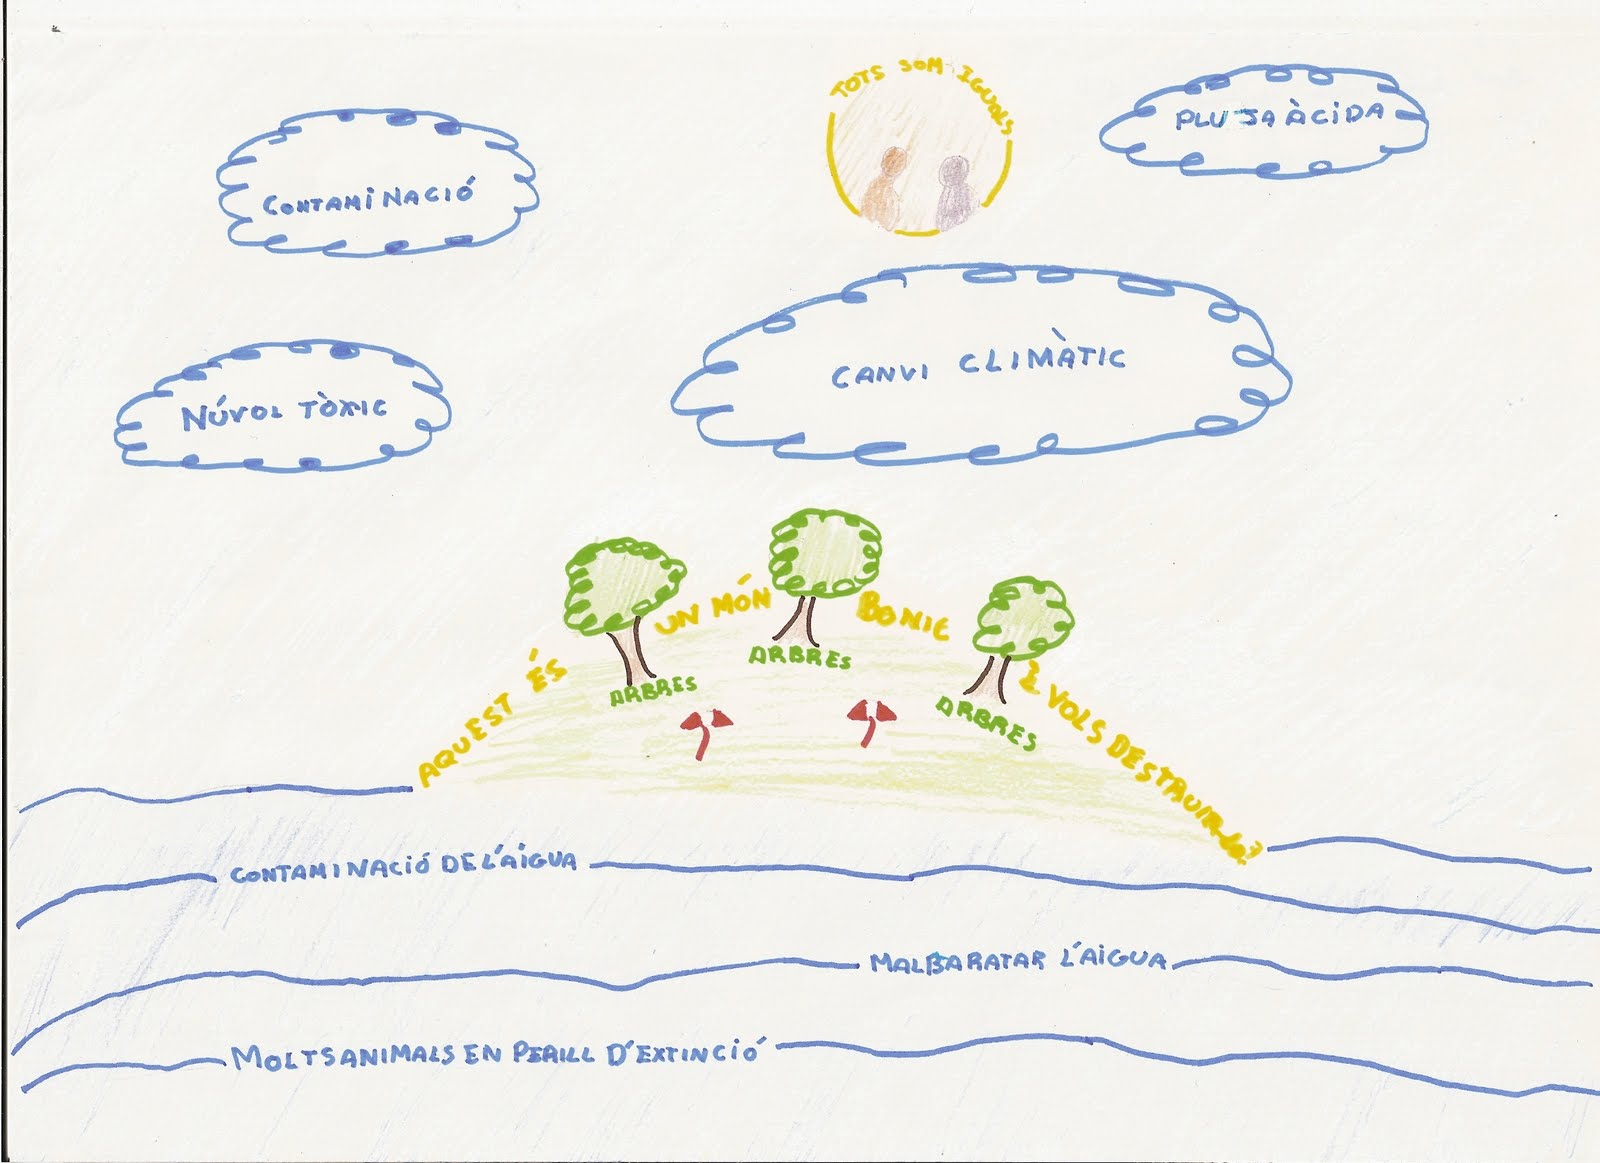 TOTS SOM IGUALS
PLUJA ÀCIDA
CONTAMINACIÓ
CANVI CLIMÀTIC
NÚVOL TÒXIC
AQUEST ÉS UN MÓN BONIC I VOLS DESTRUIR-LO?
ARBRES
ARBRES
ARBRES
CONTAMINACIÓ DE L'AIGUA
MALBARATAR L'AIGUA
MOLTS ANIMALS EN PERILL D'EXTINCIÓ